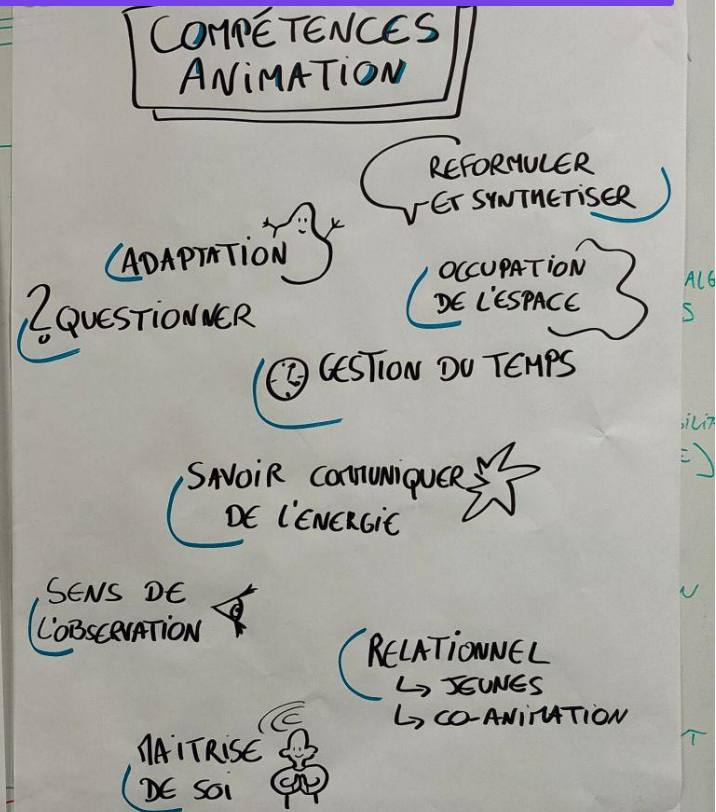 COMPÉTENCES
ANiMATiON
REFORMULER
ET SYNTHETiSER
ADAPTATiON
OCCUPATiON
DE L'ESPACE
? QUESTiONNER
GESTiON DU TEMPS
SAVOiR COMMUNiQUER
DE L'ENERGiE
SENS DE
L'OBSERVATiON
RELATiONNEL
↳ JEUNES
↳ CO-ANiMATiON
MAiTRiSE
DE SOi